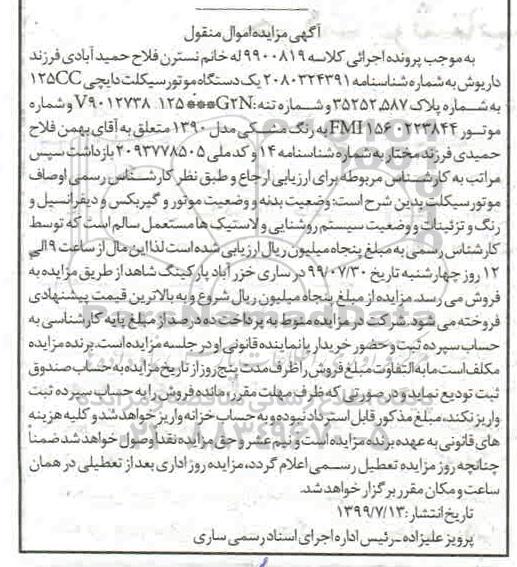 آگهی مزایده اموال منقول
به موجب پرونده اجرائی کلاسه ۹۹۰۰۸۱۹ له خانم نسترن فلاح حمید آبادی فرزند
داریوش به شماره شناسنامه ۲۰۸۰۳۲۴۳۹۱ یک دستگاه موتور سیکلت دایچی ۱۲۵CC
به شماره پلاک ۵۸۷،۳۵۲۵۲ و شماره تنه: G۲N***۱۲۵ V۹۰۱۲۷۳۸ و شماره
موتور ۱۵۶۰۲۲۳۸۴۴FMI به رنگ مشکی مدل ۱۳۹۰ متعلق به آقای بهمن فلاح
حمیدی فرزند مختار به شماره شناسنامه ۱۴ و کد ملی ۲۰۹۳۷۷۸۵۰۵ بازداشت سپس
مراتب به کارشناس مربوطه برای ارزیابی ارجاع و طبق نظر کارشناس رسمی اوصاف
موتور سیکلت بدین شرح است: وضعیت بدنه و وضعیت موتور و گیربکس و دیفرانسیل و
رنگ و تزئینات و وضعیت سیستم روشنایی و لاستیک ها مستعمل سالم است که توسط
کارشناس رسمی به مبلغ پنجاه میلیون ریال ارزیابی شده است لذا این مال از ساعت ۹ الی
۱۲ روز چهارشنبه تاریخ ۹۹/۰۷/۳۰ در ساری خزر آباد پارکینگ شاهد از طریق مزایده به
فروش می رسد. مزایده از مبلغ پنجاه میلیون ریال شروع و به بالاترین قیمت پیشنهادی
فروخته می شود. شرکت در مزایده منوط به پرداخت ده درصد از مبلغ پایه کارشناسی به
حساب سپرده ثبت و حضور خریدار یا نماینده قانونی او در جلسه مزایده است. برنده مزایده
مکلف است مابه التفاوت مبلغ فروش را ظرف مدت پنج روز از تاریخ مزایده به حساب صندوق
ثبت تودیع نماید و در صورتی که ظرف مهلت مقرر، مانده فروش را به حساب سپرده ثبت
واریز نکند، مبلغ مذکور قابل استرداد نبوده و به حساب خزانه واریز خواهد شد و کلیه هزینه
های قانونی به عهده برنده مزایده است و نیم عشر و حق مزایده نقداً وصول خواهد شد ضمناً
چنانچه روز مزایده تعطیل رسمی اعلام گردد، مزایده روز اداری بعد از تعطیلی در همان
ساعت و مکان مقرر برگزار خواهد شد.
تاریخ انتشار: ۱۳۹۹/۷/۱۳
پرویز علیزاده - رئیس اداره اجرای اسناد رسمی ساری